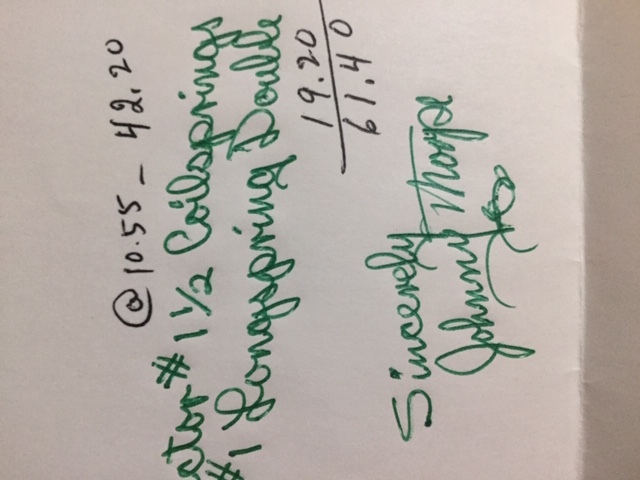 @ 10.55 - 42.20
ator # 1 1/2 Coilsprings
#1 Longspring Double
19.20
61.40
Sincerely
Johnny Thorpe